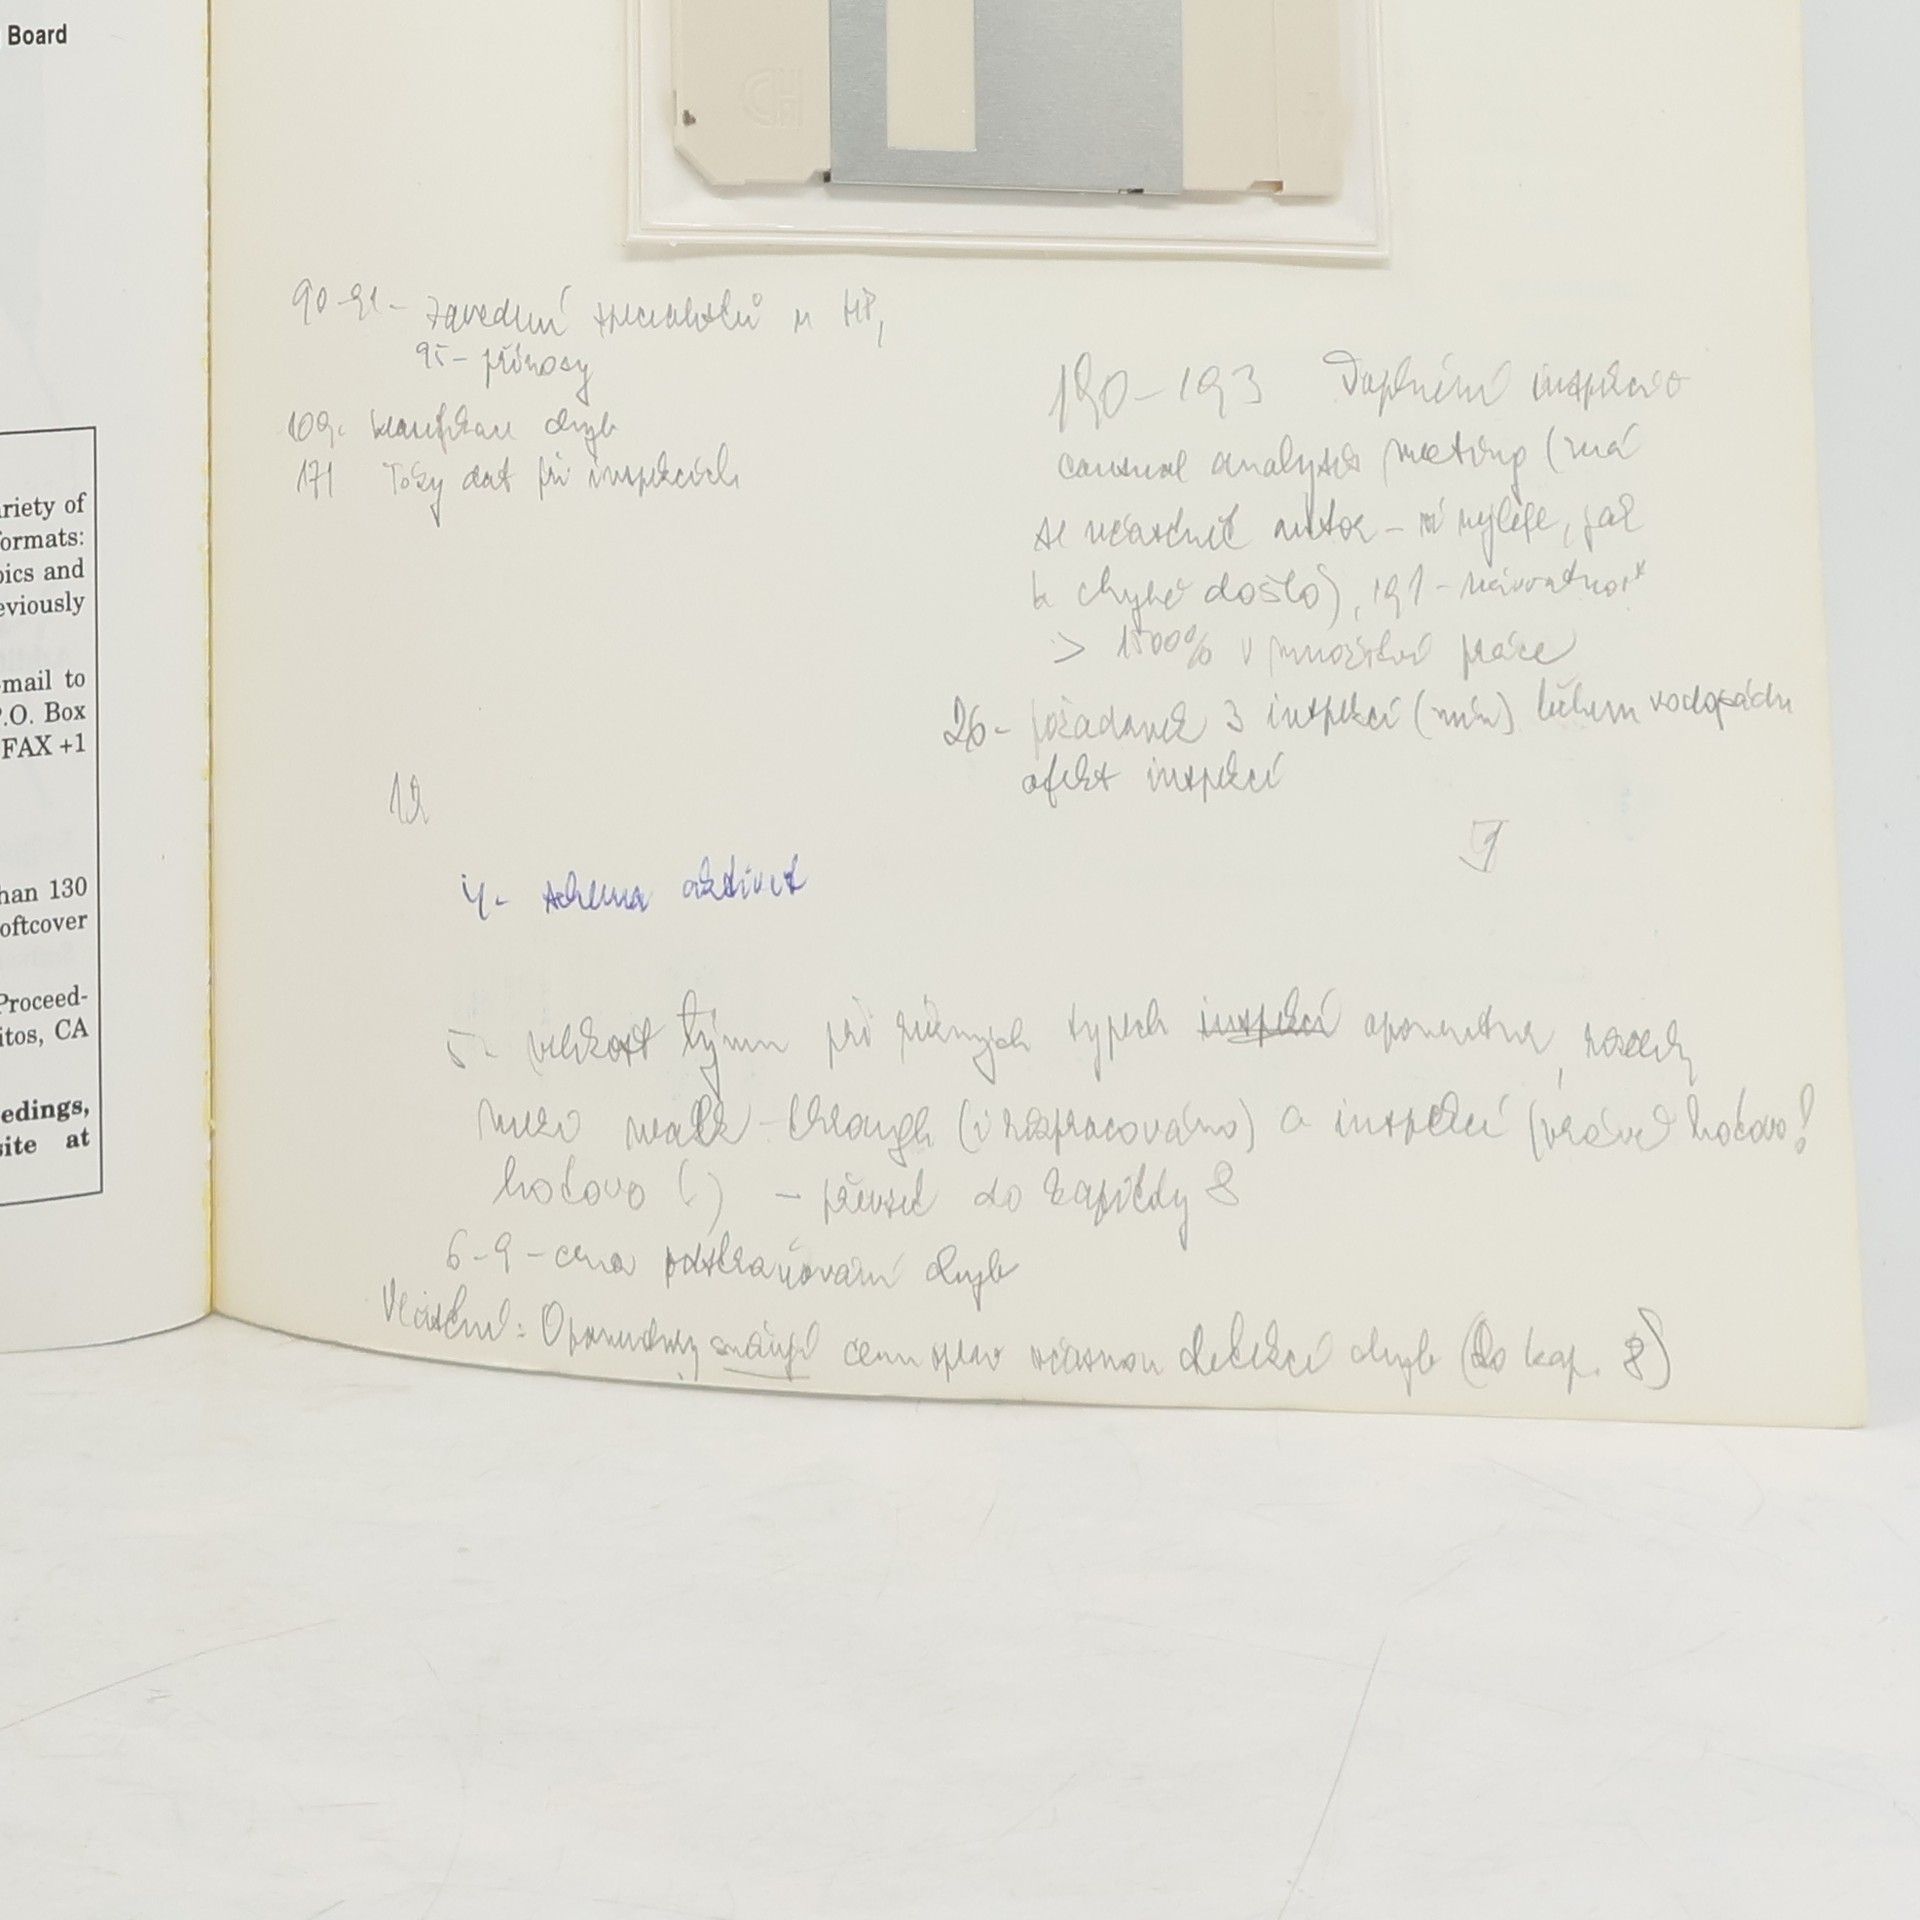 Board
riety of
ormats:
pics and
eviously
mail to
P.O. Box
FAX +1
han 130
oftcover
Proceed-
itos, CA
edings,
site at
HD
90-91- zavedení specialistů u HP,
95- přínosy
109- klasifikace chyb
171 Toky dat při inspekcích
190-193 Doplnění inspekcí o
causal analysis meeting (má
se účastnit autor - ví nejlépe, jak
k chybě došlo), 191- návratnost
> 1500% v množství práce
26- požadavek 3 inspekcí (min) během vodopádu
efekt inspekcí
12
4- schema aktivit
5- velikost týmu při různých typech inspekcí oponentur, rozdíly
mezi walk-through (i rozpracováno) a inspekcí ( hotovo!
hotovo (!) - převzít do kapitoly 8
6-9- cena odstraňování chyb
Vlastně: Oponentury snižují cenu oprav včasnou detekcí chyb (do kap. 8)